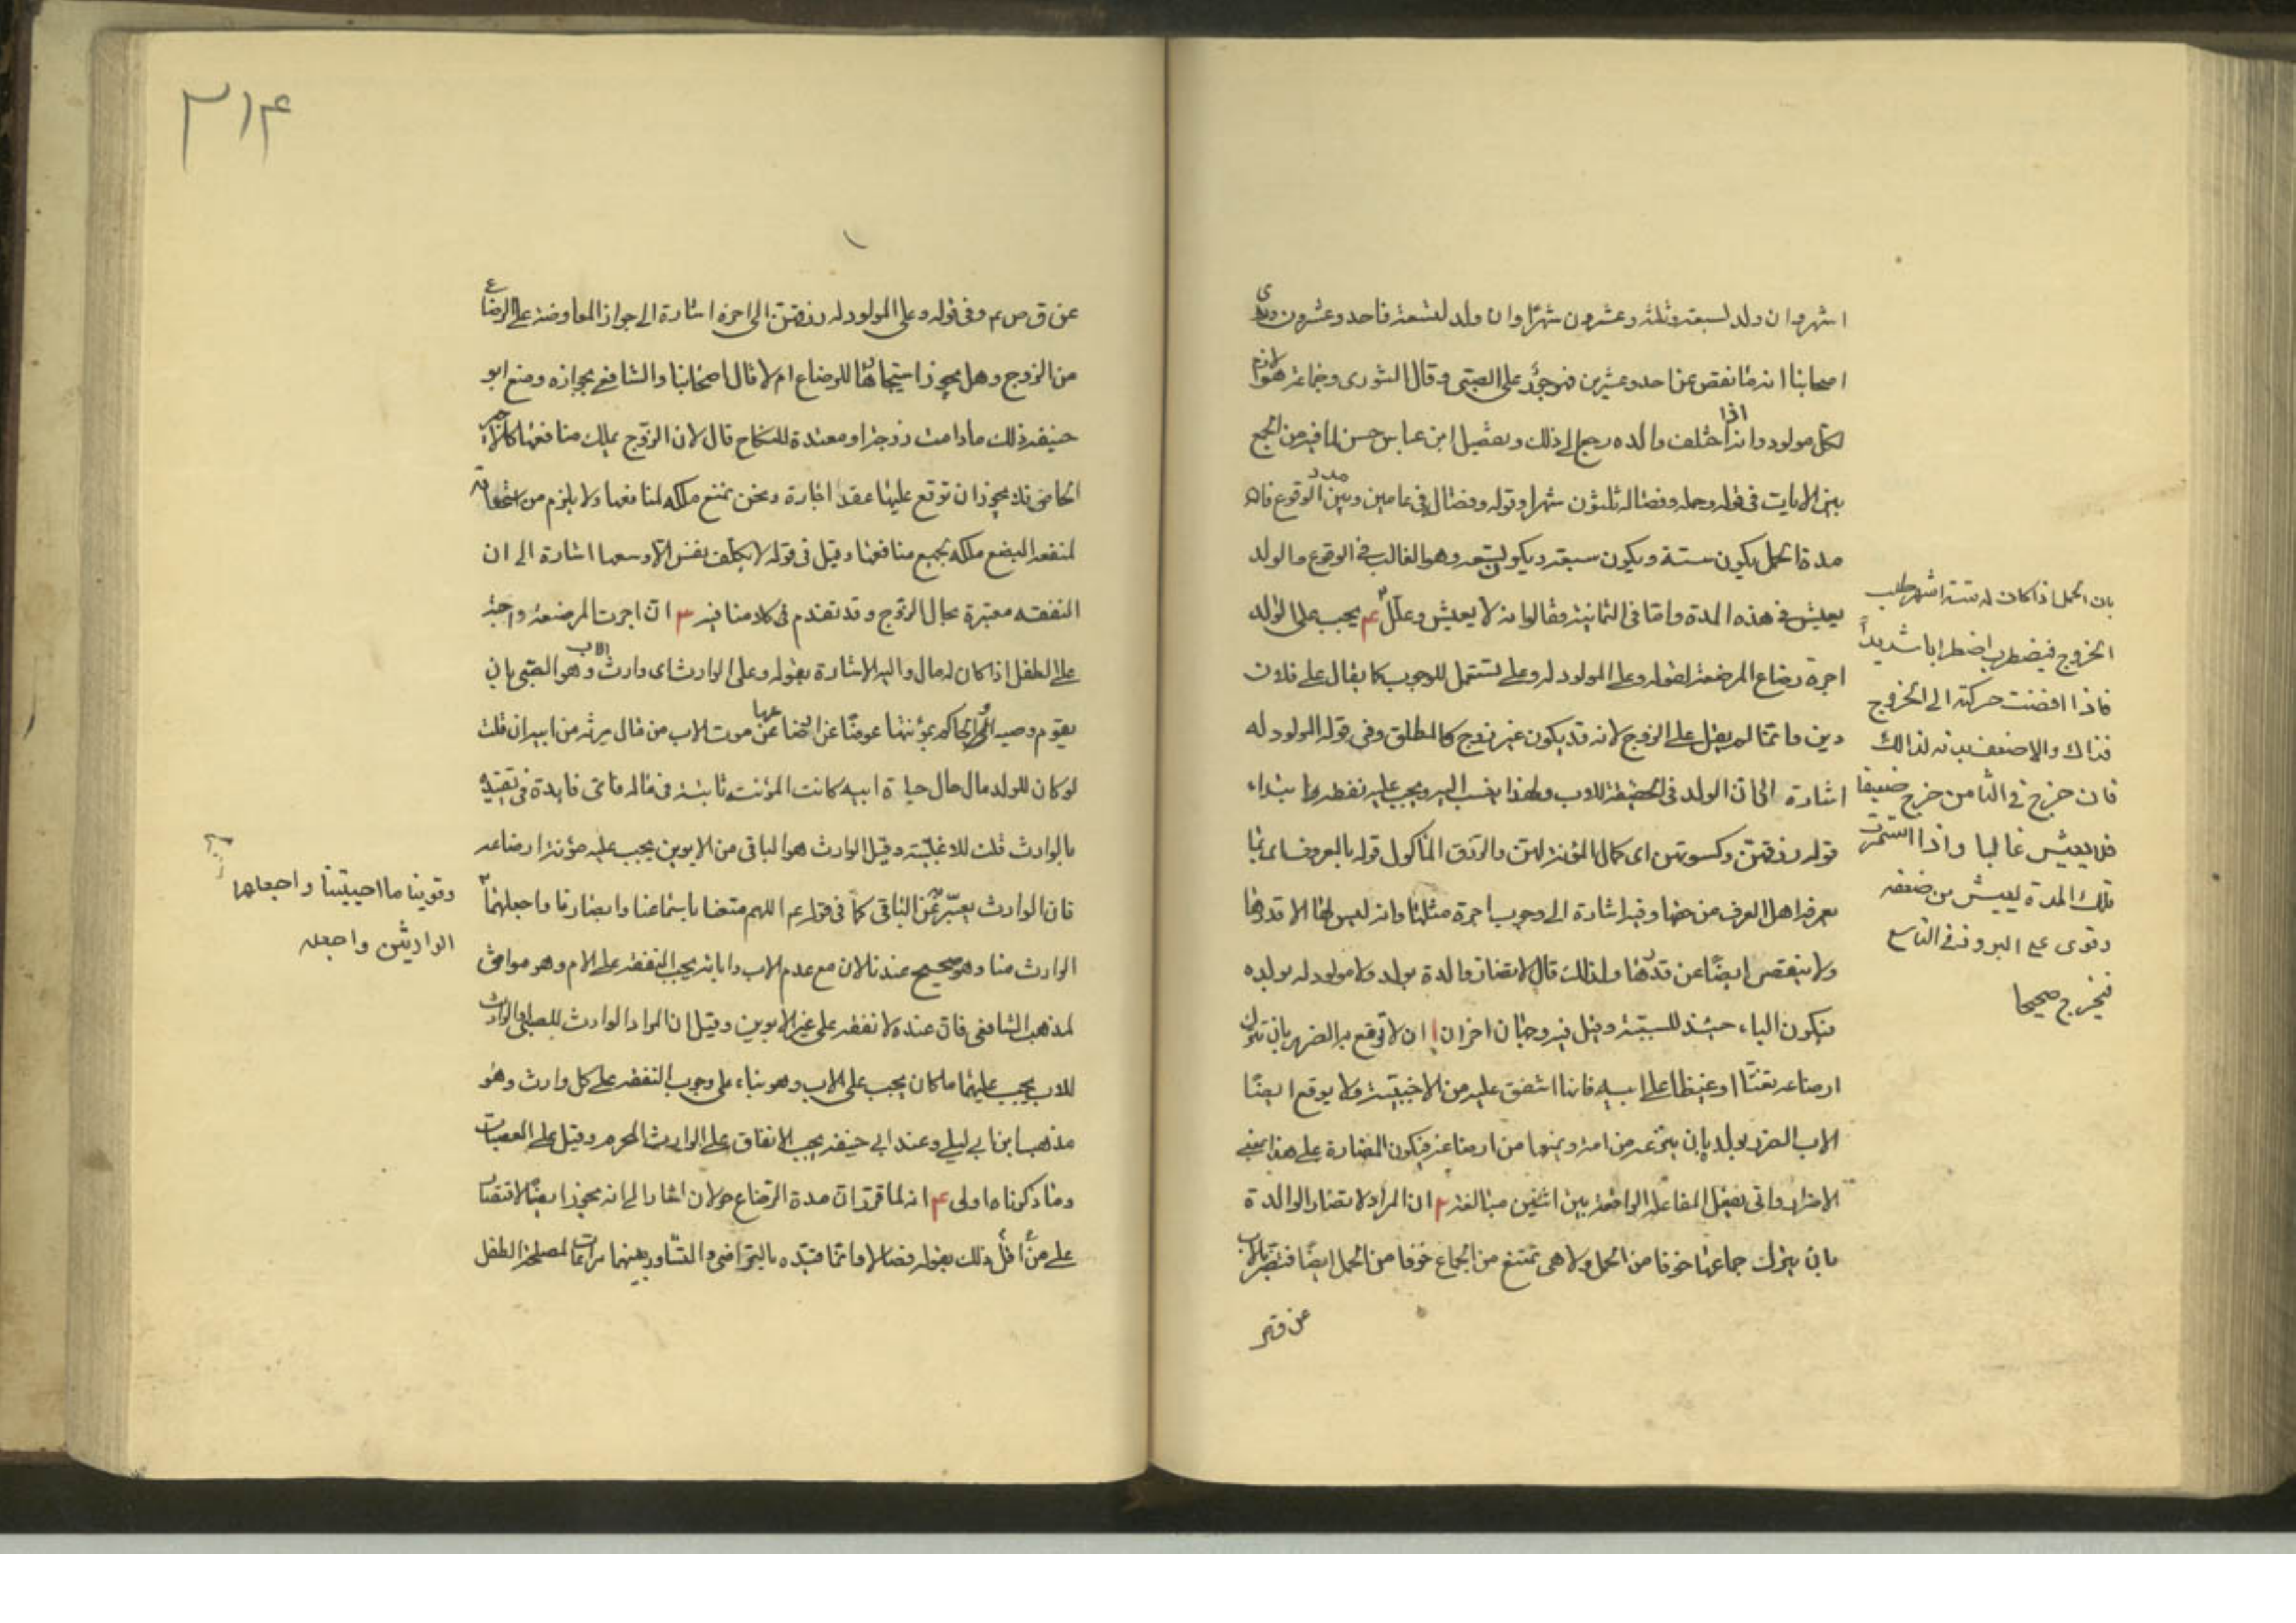 اشهر وان ولد لسبعة فثلثة وعشرون شهرًا وان ولد لتسعة فاحد وعشرون وروى
اصحابنا انه ما نقص عن احد وعشرين فهو جور على الصبى وقال الثورى وجماعة هو لازم
لكل مولود وانه اذا اختلف والده رجع الى ذلك وتفصيل ابن عباس حسن لما فيه من الجمع
بين الايات فى قوله وحمله وفصاله ثلثون شهرا وقوله وفصاله فى عامين وبين مدد الوقوع فان
مدة الحمل يكون ستة ويكون سبعة ويكون تسعة وهو الغالب فى الوقوع والولد
يعيش فى هذه المدة واما فى الثمانية فقالوا انه لا يعيش وعلل
يجب على المولود له
اجرة رضاع المرضعة لقوله وعلى المولود له وعلى تستعمل للوجوب كما يقال على فلان
دين وانما لم يقل على الزوج لانه قد يكون غير زوج كالمطلق وفى قوله المولود له
اشارة الى ان الولد فى الحقيقة للاب ولهذا ينسب اليه ويجب عليه نفقته ابتداء
قوله رزقهن وكسوتهن اى كمال المؤنة لهن والرزق الماكول قوله بالمعروف اى بما
يعرفه اهل العرف من حقها وفيه اشارة الى وجوب اجرة مثلها وانه ليس لها الا قدرها
ولا ينقص ايضًا عن قدرها ولذلك قال لا تضار والدة بولدها ولا مولود له بولده
فيكون الباء حينئذ للسببية وقيل فيه وجهان اخران ا ان لا توقع به الضرر بان تترك
ارضاعه تعنتًا او غيظا على ابيه فانها اشفق عليه من الاجنبية ولا يوقع ايضًا
الاب الضرر بولده بان ينزعه من امه ويمنعها من ارضاعه فيكون المضارة على هذا بمعنى
الاضرار واتى بصيغة المفاعلة الواقعة بين اثنين مبالغة ٢ ان المراد لا تضار الوالدة
بان يترك جماعها خوفا من الحمل ولا هى تمتنع من الجماع خوفا من الحمل ايضًا فتضر بالاب
عن ق ص
بان الحمل اذا كان له ستة اشهر طلب
الخروج فيضطرب اضطرابا شديدًا
فاذا افضت حركته الى الخروج
فذاك والا ضعف بدنه لذلك
فان خرج فى الثامن خرج ضعيفا
فلا يعيش غالبا واذا استمرت
تلك المدة يعيش من ضعفه
وقوى على البروز فى التاسع
فيخرج صحيحا
٣١۴
عن ق ص م وفى قوله وعلى المولود له رزقهن الى اخره اشارة الى جواز المعاوضة على الرضاع
من الزوج وهل يجوز استيجارها للرضاع ام لا قال اصحابنا والشافعى بجوازه ومنع ابو
حنيفة ذلك ما دامت زوجة او معتدة للنكاح قال لان الزوج يملك منافعها كالاجير
الخاص فلا يجوز ان توقع عليها عقد اجارة ونحن نمنع ملكه لمنافعها ولا يلزم من استحقاقه
لمنفعة البضع ملكه لجميع منافعها وقيل فى قوله لا تكلف نفس الا وسعها اشارة الى ان
النفقة معتبرة بحال الزوج وقد تقدم فى كلامنا فيه ٣ ان اجرة المرضعة واجبة
على الطفل اذا كان له مال واليه الاشارة بقوله وعلى الوارث اى وارث الاب وهو الصبى بان
يقوم وصيه او الحاكم بمؤنتها عوضًا عن رضاعها عن موت الاب من مال يرثه من ابيه ان قلت
لو كان للولد مال حال حياة ابيه كانت المؤنة ثابتة فى ماله فاى فايدة فى تقييده
بالوارث قلت للاغلبية وقيل الوارث هو الباقى من الابوين يجب عليه مؤنة ارضاعه
فان الوارث يعبّر به عن الباقى كما فى قوله عم اللهم متعنا باسماعنا وابصارنا واجعلهما
الوارث منا وهو صحيح عندنا لان مع عدم الاب وابائه يجب النفقة على الام وهو موافق
لمذهب الشافعى فان عنده لا نفقة على غير الابوين وقيل ان المراد الوارث للصبى والوارث
للاب يجب عليهما ما كان يجب على الاب وهو بناء على وجوب النفقة على كل وارث وهو
مذهب ابن ابى ليلى وعند ابى حنيفة يجب الانفاق على الوارث المحرم وقيل على العصبات
وما ذكرناه اولى ۴ انه لما قرر ان مدة الرضاع حولان اشار الى انه يجوز ايضًا الاقتصار
على اقل من ذلك بقوله فصالا وانما قيده بالتراضى والتشاور بينهما مراعاتا لمصلحة الطفل
وقوتنا ما احييتنا واجعلهما
الوارثين واجعله